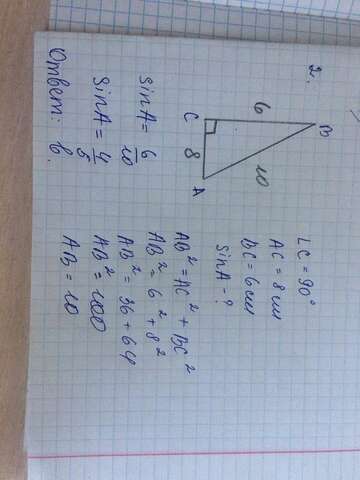 2.
B
6
10
C
8
A
∠C = 90°
AC = 8 см
BC = 6 см
sinA - ?
AB² = AC² + BC²
AB² = 6² + 8²
AB² = 36 + 64
AB² = 100
AB = 10
sinA = 6/10
sinA = 4/5
Ответ: в.